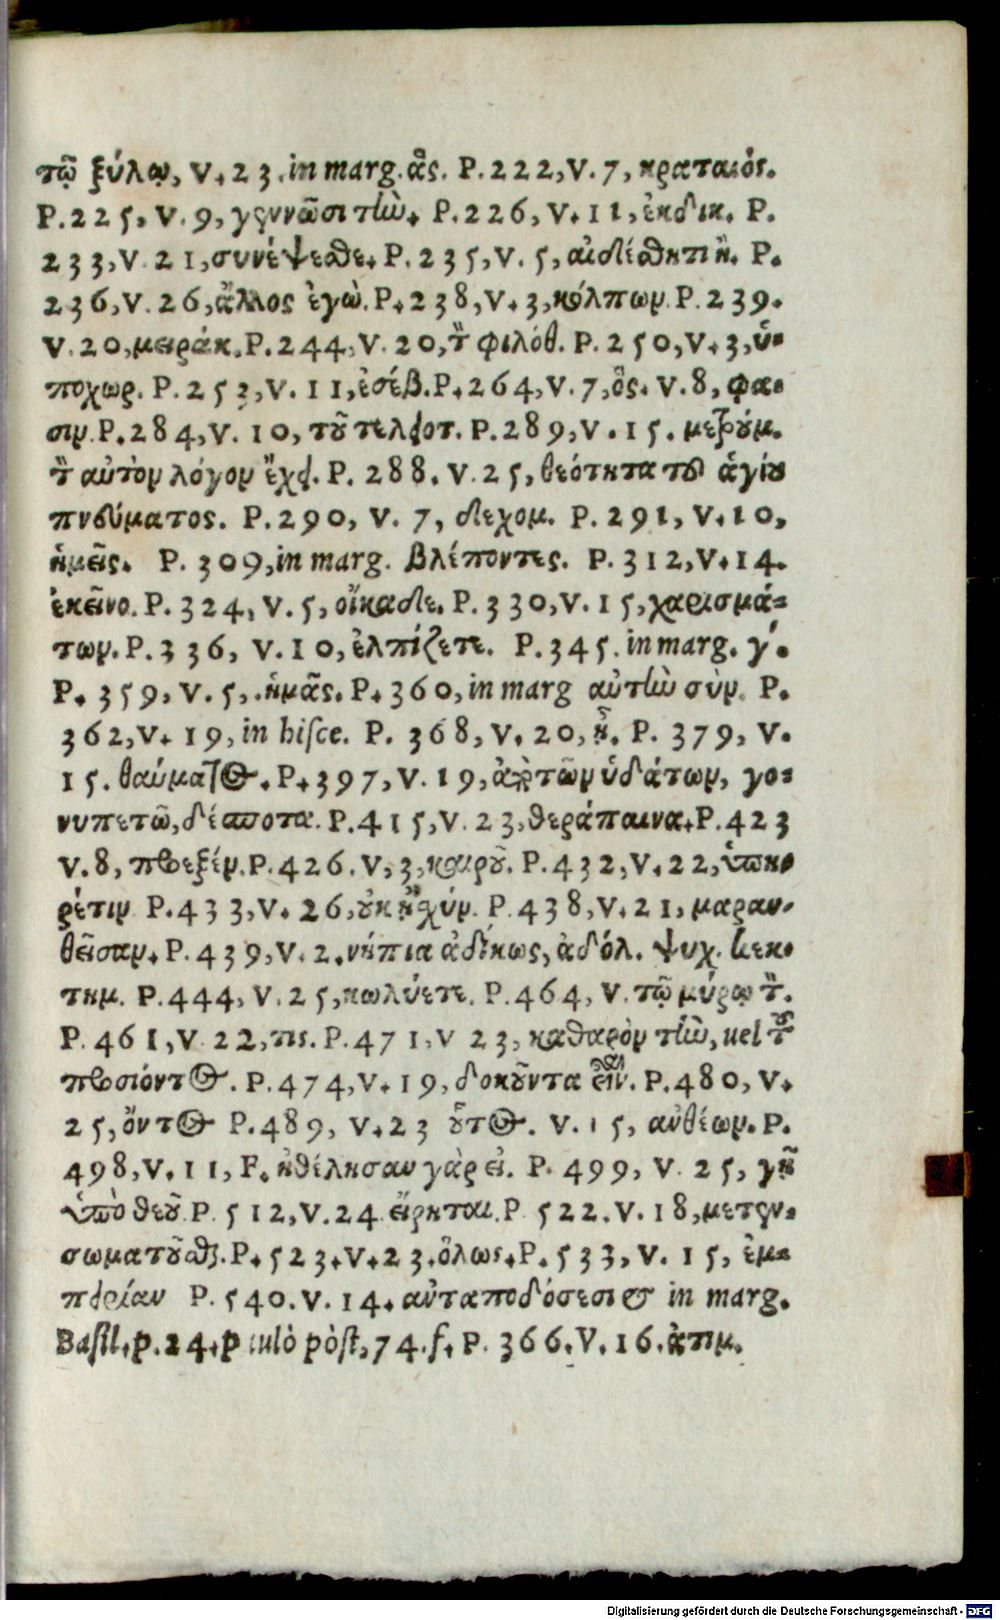 τῷ ξύλῳ, V. 23. in marg. ἃς. P. 222, V. 7, κραταιός.
P. 225, V. 9, γεννῶσι τὴν. P. 226, V. 11, ἐκδικ. P.
233, V. 21, συνέψεσθε. P. 235, V. 5, αἰδέσθητι ἢ. P.
236, V. 26, ἄλλος ἐγὼ. P. 238, V. 3, κόλπων. P. 239.
V. 20, μειράκ. P. 244, V. 20, τὸ φιλόθ. P. 250, V. 3, ὑ-
ποχωρ. P. 252, V. 11, ἐσέβ. P. 264, V. 7, ὃς. V. 8, φα-
σιν. P. 284, V. 10, τοῦ τελειοτ. P. 289, V. 15. μετρούμ.
τὸ αὐτὸν λόγον ἔχει. P. 288. V. 25, θεότητα τοῦ ἁγίου
πνεύματος. P. 290, V. 7, δεχομ. P. 291, V. 10,
ἡμεῖς. P. 309, in marg. βλέποντες. P. 312, V. 14.
ἐκεῖνο. P. 324, V. 5, οἴκαδε. P. 330, V. 15, χαρισμά-
των. P. 336, V. 10, ἐλπίζετε. P. 345. in marg. γ΄.
P. 359, V. 5, ἡμᾶς. P. 360, in marg αὐτὴν σὺν. P.
362, V. 19, in hisce. P. 368, V. 20, ἧς. P. 379, V.
15. θαύματος. P. 397, V. 19, ἀπὸ τῶν ὑδάτων, γο-
νυπετῶ, δέσποτα. P. 415, V. 23, θεράπαινα. P. 423
V. 8, προεξέν. P. 426. V, 3, καιροῦ. P. 432, V. 22, ὑποκ-
ρέτιν P. 433, V. 26, οὐκ χύν. P. 438, V. 21, μαραν-
θεῖσαν. P. 439, V. 2. νήπια ἀδίκως, ἀδόλ. ψυχ. κεκ-
τημ. P. 444, V. 25, κωλύετε. P. 464, V. τῷ μύρῳ τὸ.
P. 461, V 22, τις. P. 471, V 23, καθαρὸν τὴν, uel τοῦ
προσιόντος. P. 474, V. 19, δοκοῦντα εἶναι. P. 480, V.
25, ὄντος P. 489, V. 23 οὗτος. V. 15, αὐθέων. P.
498, V. 11, F. ἠθέλησαν γὰρ εἰ. P. 499, V. 25, γῆ
ὑπὸ θεοῦ. P. 512, V. 24 εἴρηται. P 522. V. 18, μετεν-
σωματοῦσθαι. P. 523. V. 23. ὅλως. P. 533, V. 15, ἐμ-
πειρίαν P. 540. V. 14. αὐταποδόσεσι & in marg.
Basil. p. 24. p iulò pòst, 74. f. P. 366. V. 16. ἀτιμ.
Digitalisierung gefördert durch die Deutsche Forschungsgemeinschaft - DFG